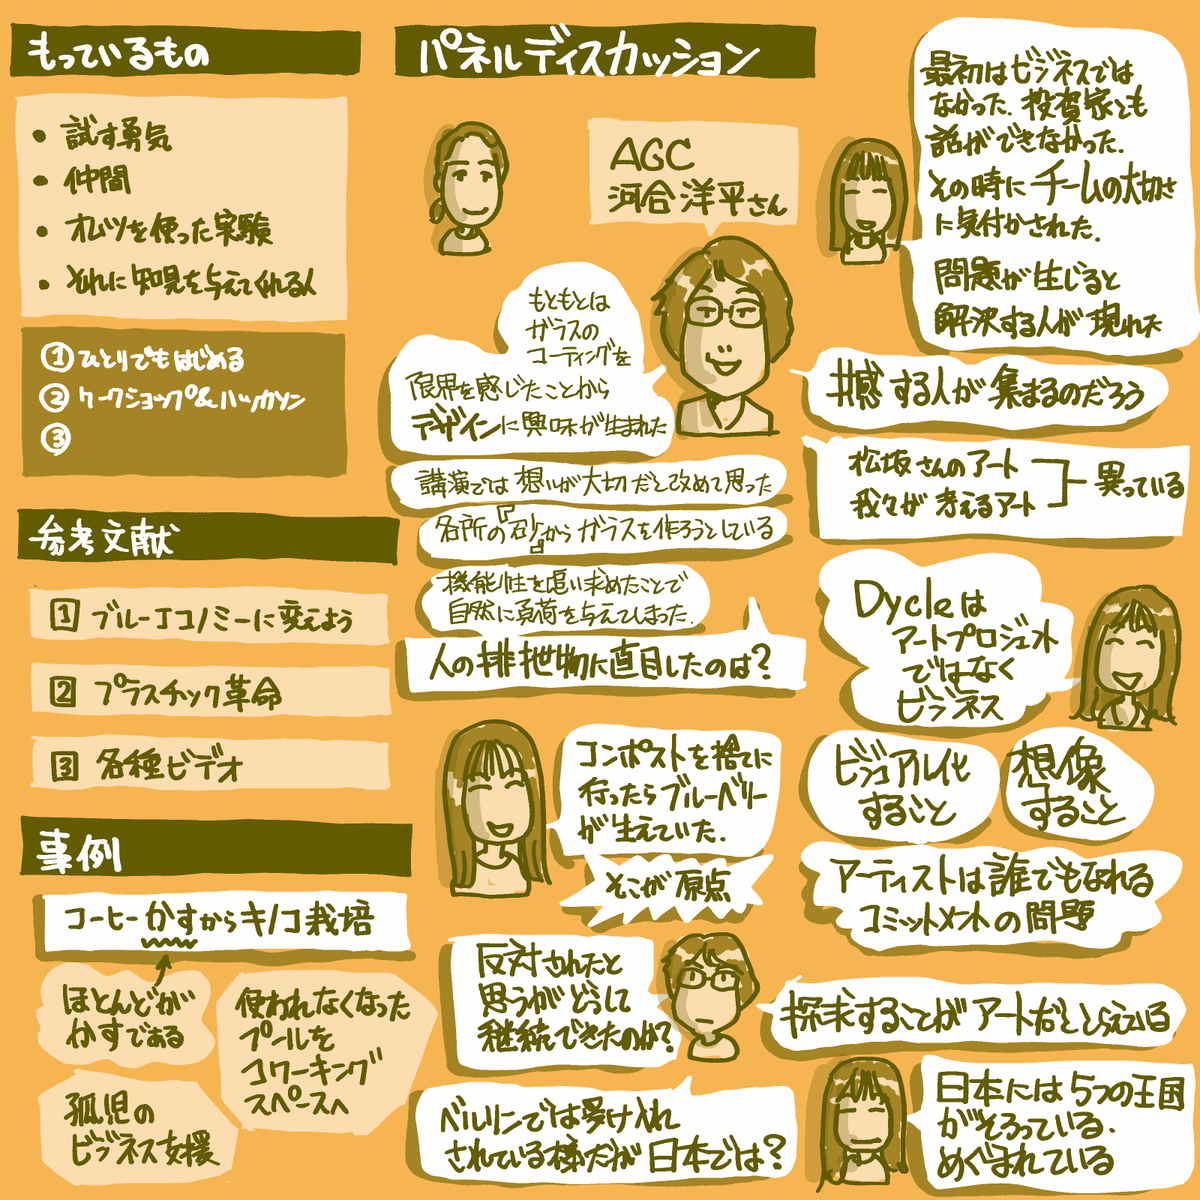 もっているもの
・試す勇気
・仲間
・オムツを使った実験
・それに知見を与えてくれる人
①ひとりでもはじめる
②ワークショップ&ハッカソン
③
参考文献
1 ブルーエコノミーに変えよう
2 プラスチック革命
3 各種ビデオ
事例
コーヒーかすからキノコ栽培
ほとんどが
かすである
使われなくなった
プールを
コワーキング
スペースへ
孤児の
ビジネス支援
パネルディスカッション
AGC
河合洋平さん
もともとは
ガラスの
コーティングを
限界を感じたことから
デザインに興味が生まれた
講演では想いが大切だと改めて思った
各所の『砂』からガラスを作ろうとしている
機能性を追い求めたことで
自然に負荷を与えてしまった.
人の排泄物に直目したのは?
コンポストを捨てに
行ったらブルーベリー
が生えていた.
そこが原点
反対されたと
思うがどうして
継続できたのか?
ベルリンでは受け入れ
されている様だが日本では?
最初はビジネスでは
なかった.投資家とも
話ができなかった.
その時にチームの大切さ
に気付かされた.
問題が生じると
解決する人が現れた
共感する人が集まるのだろう
松坂さんのアート
我々が考えるアート
異っている
Dycleは
アートプロジェクト
ではなく
ビジネス
ビジュアル化
すること
想像
すること
アーティストは誰でもなれる
コミットメントの問題
探求することがアートだととらえている
日本には5つの王国
がそろっている.
めぐまれている